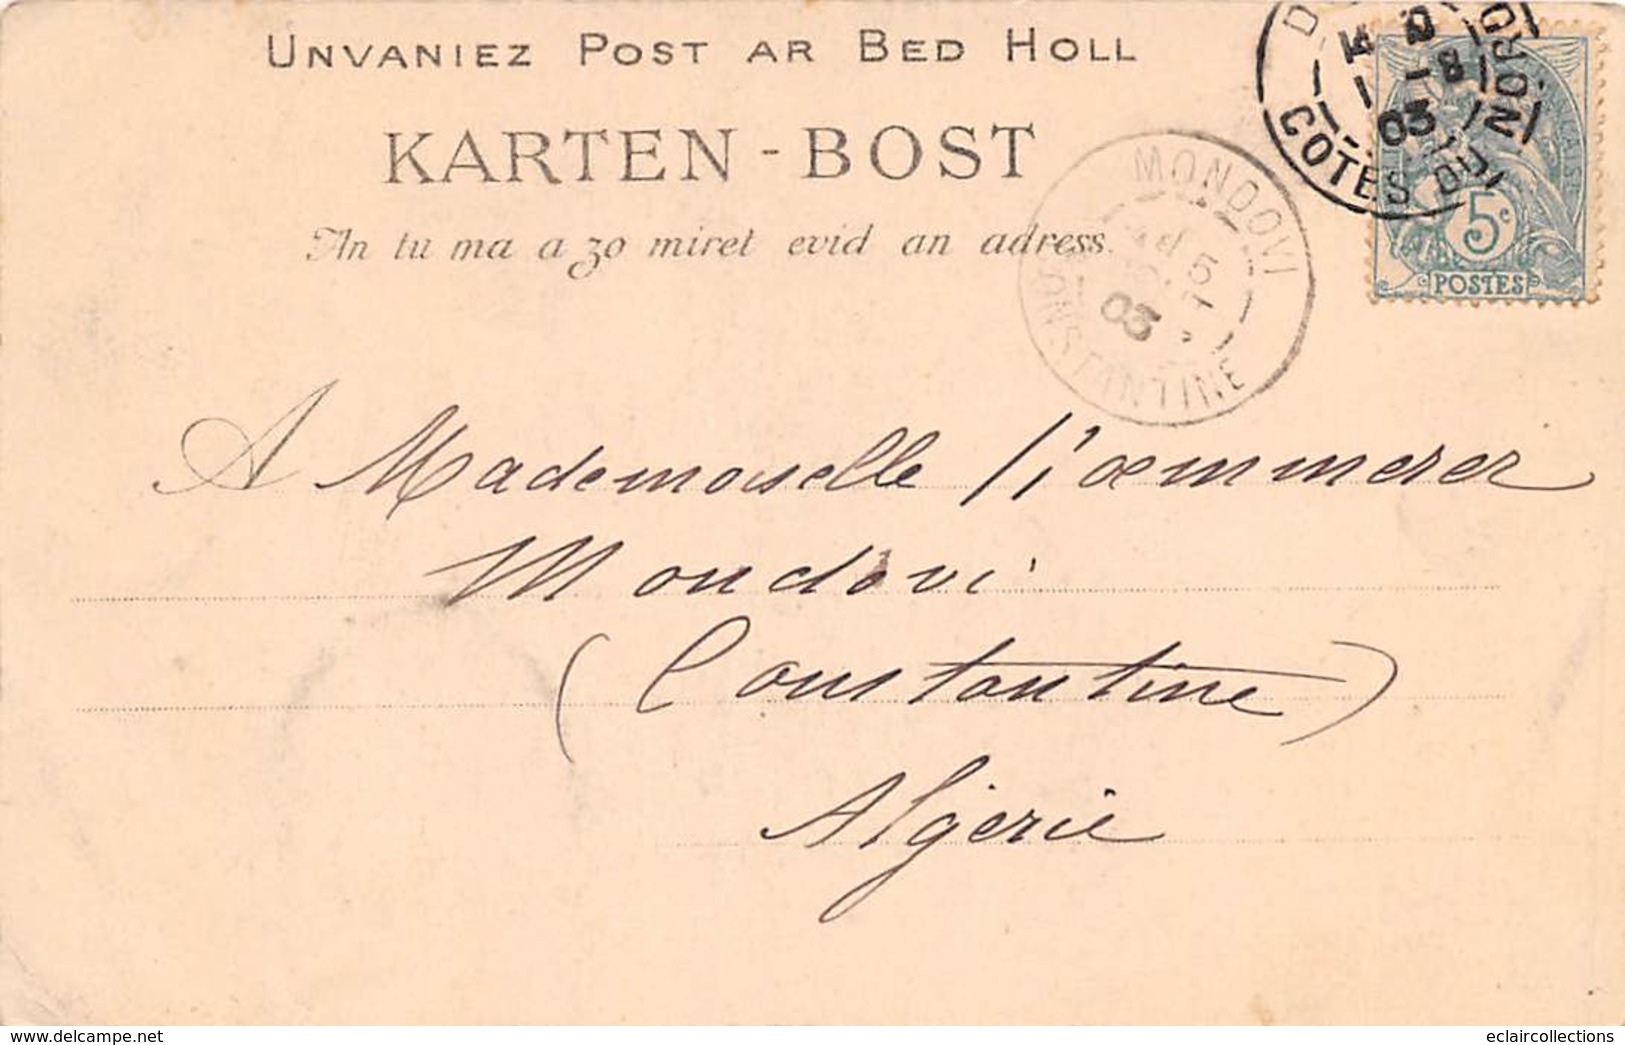 UNVANIEZ POST AR BED HOLL
KARTEN-BOST
An tu ma a zo miret evid an adress.
MONDOVI
5
03
CONSTANTINE
03
COTES DU NORD
5c
POSTES
A Mademoiselle
Mondovi
(Constantine)
Algérie
eclaircollections